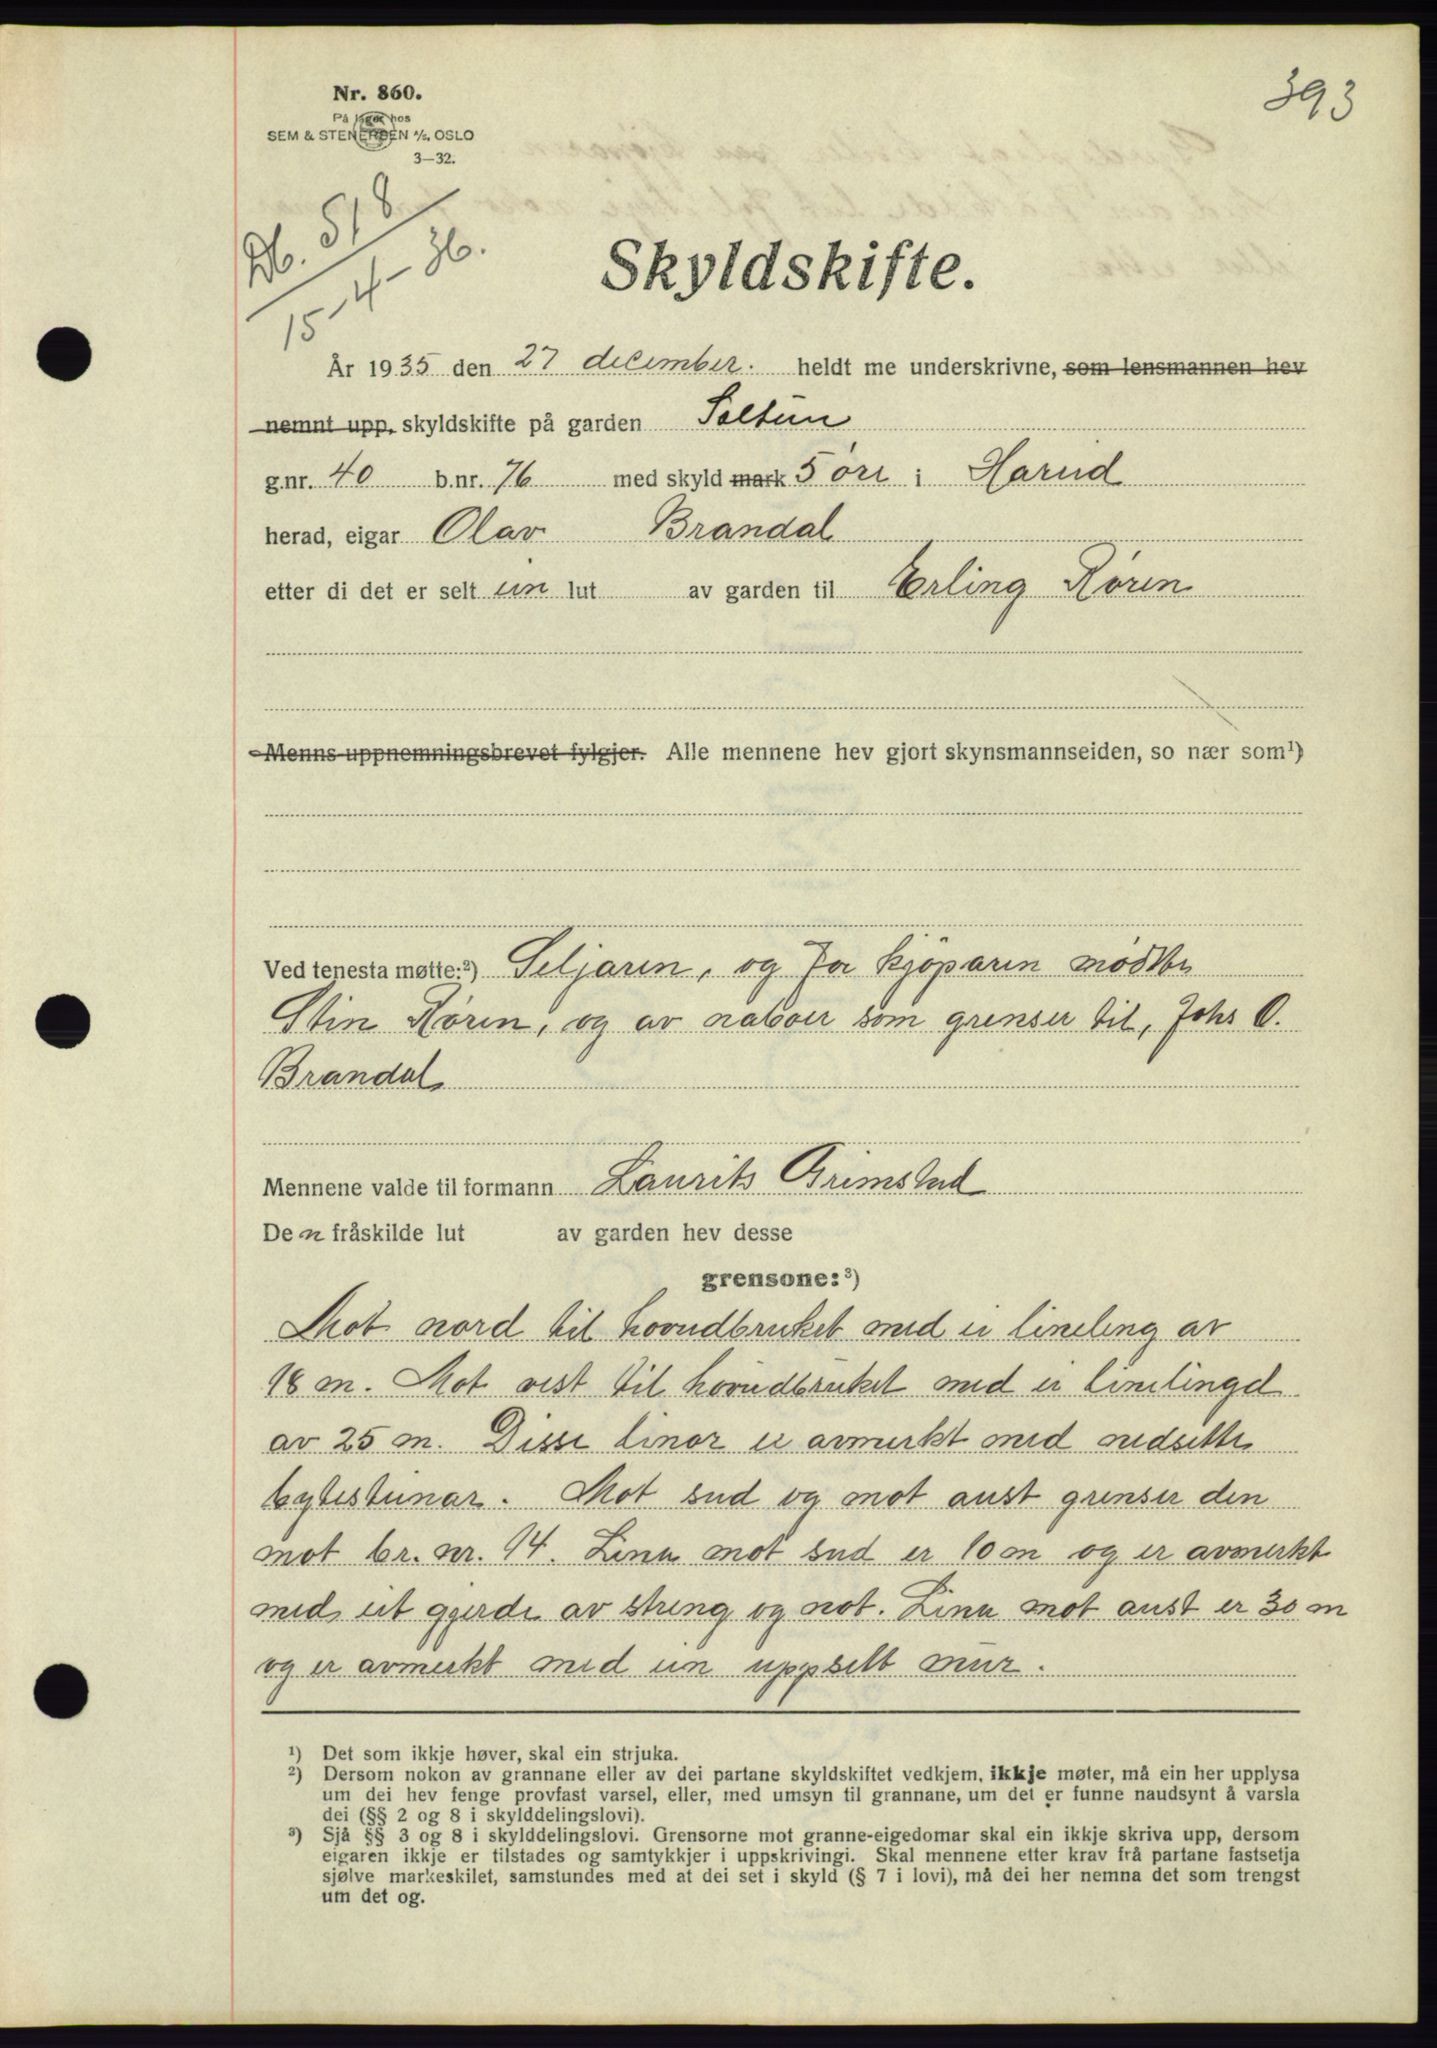 393
Nr. 860.
På lager hos
SEM & STENERSEN A/S, OSLO
3—32.
Db. 518
15-4-36.
Skyldskifte.
År 1935 den 27 december. heldt me underskrivne, som lensmannen hev
nemnt upp, skyldskifte på garden Soltun
g.nr. 40 b.nr. 76 med skyld mark 5 öre i Hareid
herad, eigar Olav Brandal
etter di det er selt ein lut av garden til Erling Røren
Menns-uppnemningsbrevet fylgjer. Alle mennene hev gjort skynsmannseiden, so nær som¹)
Ved tenesta møtte:²) Seljaren, og for kjöparen mödte
Stin Røren, og av naboer som grenser til, Johs O.
Brandal
Mennene valde til formann Laurits Grimstad
De n fråskilde lut av garden hev desse
grensone:³)
Mot nord til hovudbruket med ei lineleng av
18 m. Mot vest til hovudbruket med ei linelingd
av 25 m. Disse linor er avmerkt med nedsette
bytesteinar. Mot sud og mot aust grenser den
mot br. nr. 14. Lina mot sud er 10 m og er avmerkt
med eit gjerde av streng og not. Lina mot aust er 30 m
og er avmerkt med ein uppsett mur.
¹) Det som ikkje høver, skal ein strjuka.
²) Dersom nokon av grannane eller av dei partane skyldskiftet vedkjem, ikkje møter, må ein her upplysa
um dei hev fenge provfast varsel, eller, med umsyn til grannane, um det er funne naudsynt å varsla
dei (§§ 2 og 8 i skylddelingslovi).
³) Sjå §§ 3 og 8 i skylddelingslovi. Grensorne mot granne-eigedomar skal ein ikkje skriva upp, dersom
eigaren ikkje er tilstades og samtykkjer i uppskrivingi. Skal mennene etter krav frå partane fastsetja
sjølve markeskilet, samstundes med at dei set i skyld (§ 7 i lovi), må dei her nemna det som trengst
um det og.